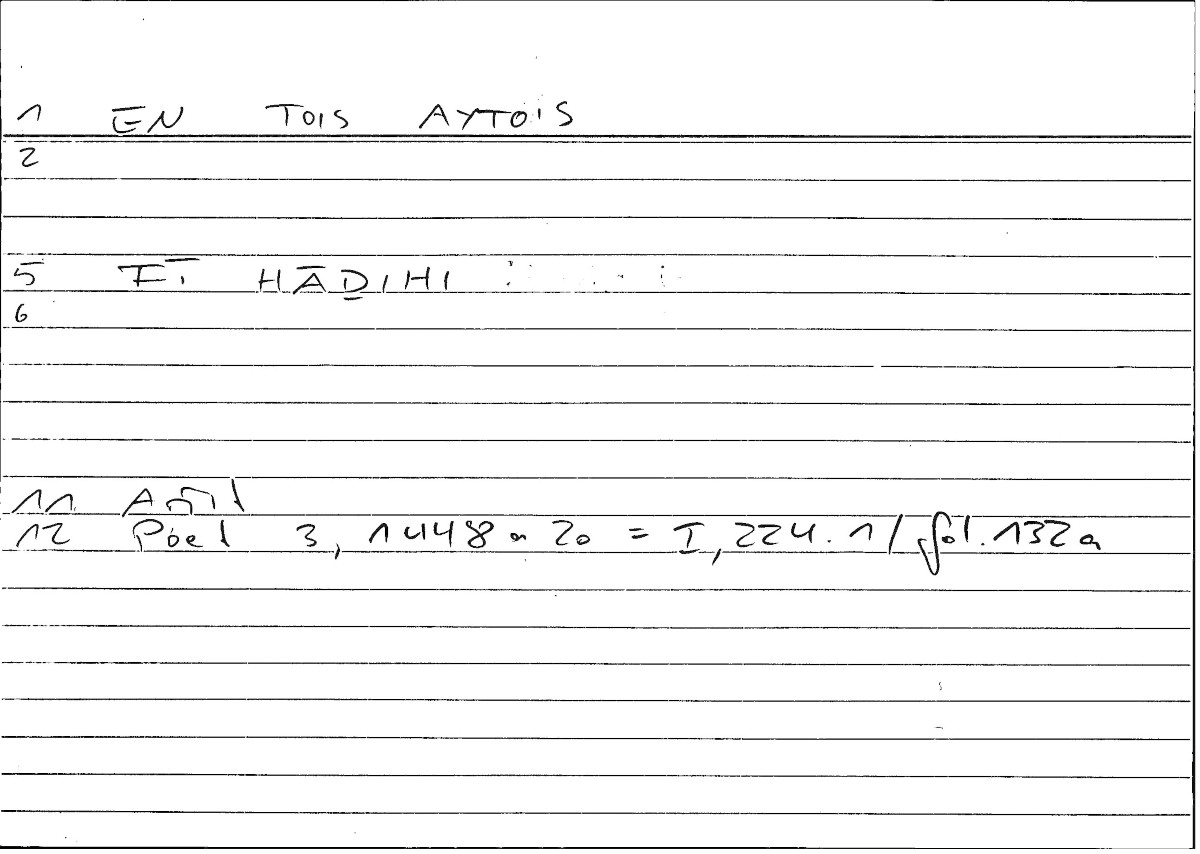 1 EN TOIS AYTOIS
2
5 FĪ HĀḎIHI
6
11
12 Poet 3, 1448 a 20 = I, 224.1 / fol. 132a